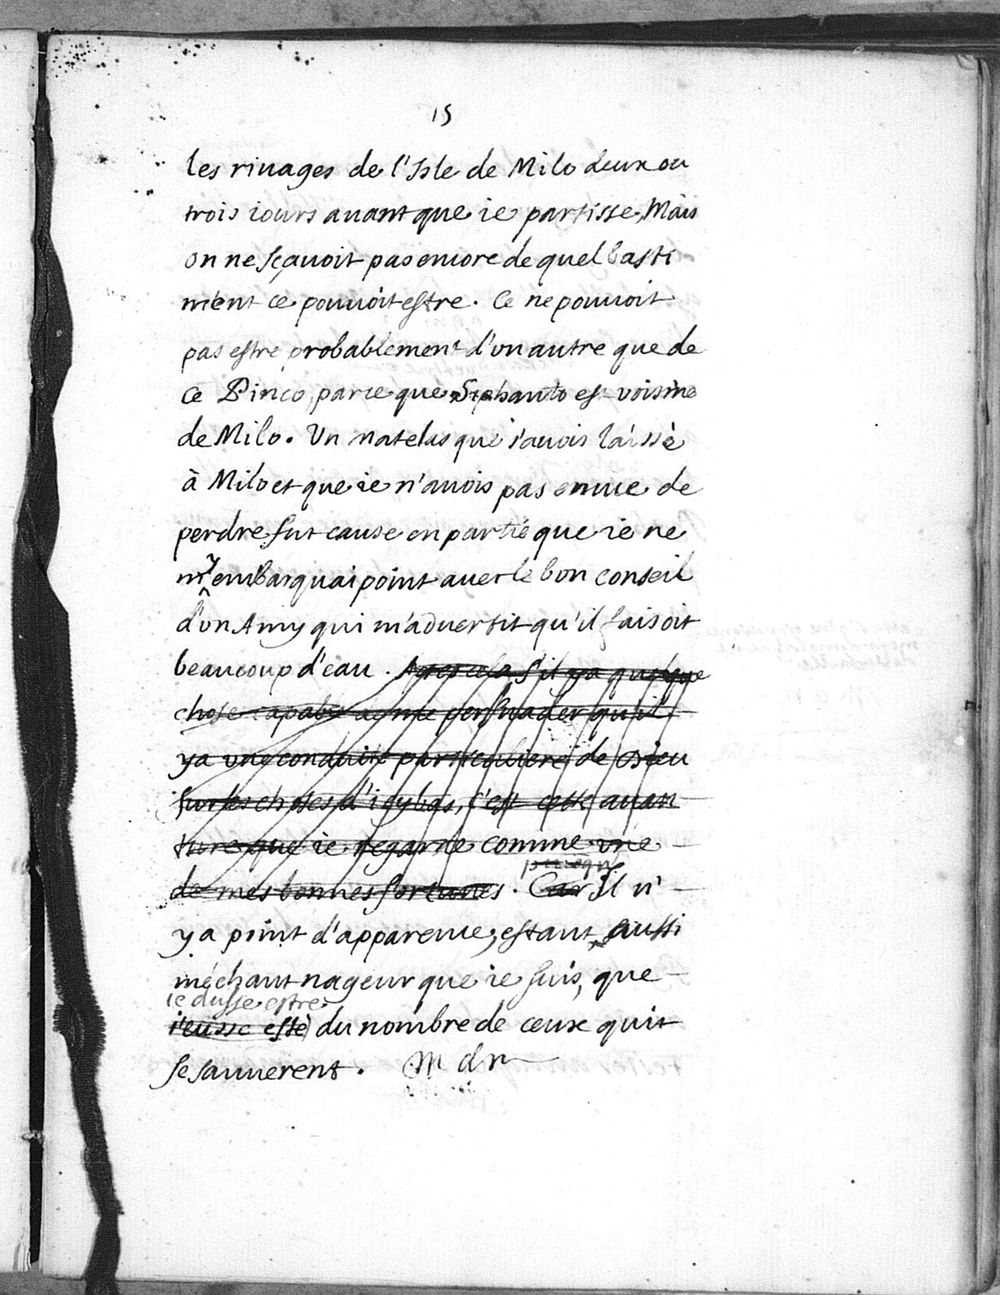 15
les riuages de l'Isle de Milo deux ou
trois iours auant que ie partisse, Mais
on ne sçauoit pas encore de quel basti
ment ce pouuoit estre. Ce ne pouuoit
pas estre probablement d'un autre que de
ce Pinco, parce que Siphanto est voisine
de Milo. Un matelas que i'auois laissè
à Milo et que ie n'auois pas enuie de
perdre fut cause en partie que ie ne
m'embarquai point auec le bon conseil
d'un Amy qui m'aduertit qu'il faisoit
beaucoup d'eau. Apres cela s'il ya quelque
chose capable de me persuader qu'il
ya une conduite particuliere de Dieu
sur les choses d'icy bas, c'est cette auan
ture que ie regarde comme une
puisque
de mes bonnes fortunes. Car Il n'
ya point d'apparence, estant aussi
méchant nageur que ie suis, que
ie dusse estre
i'eusse esté du nombre de ceux qui
se sauuerent. M d r